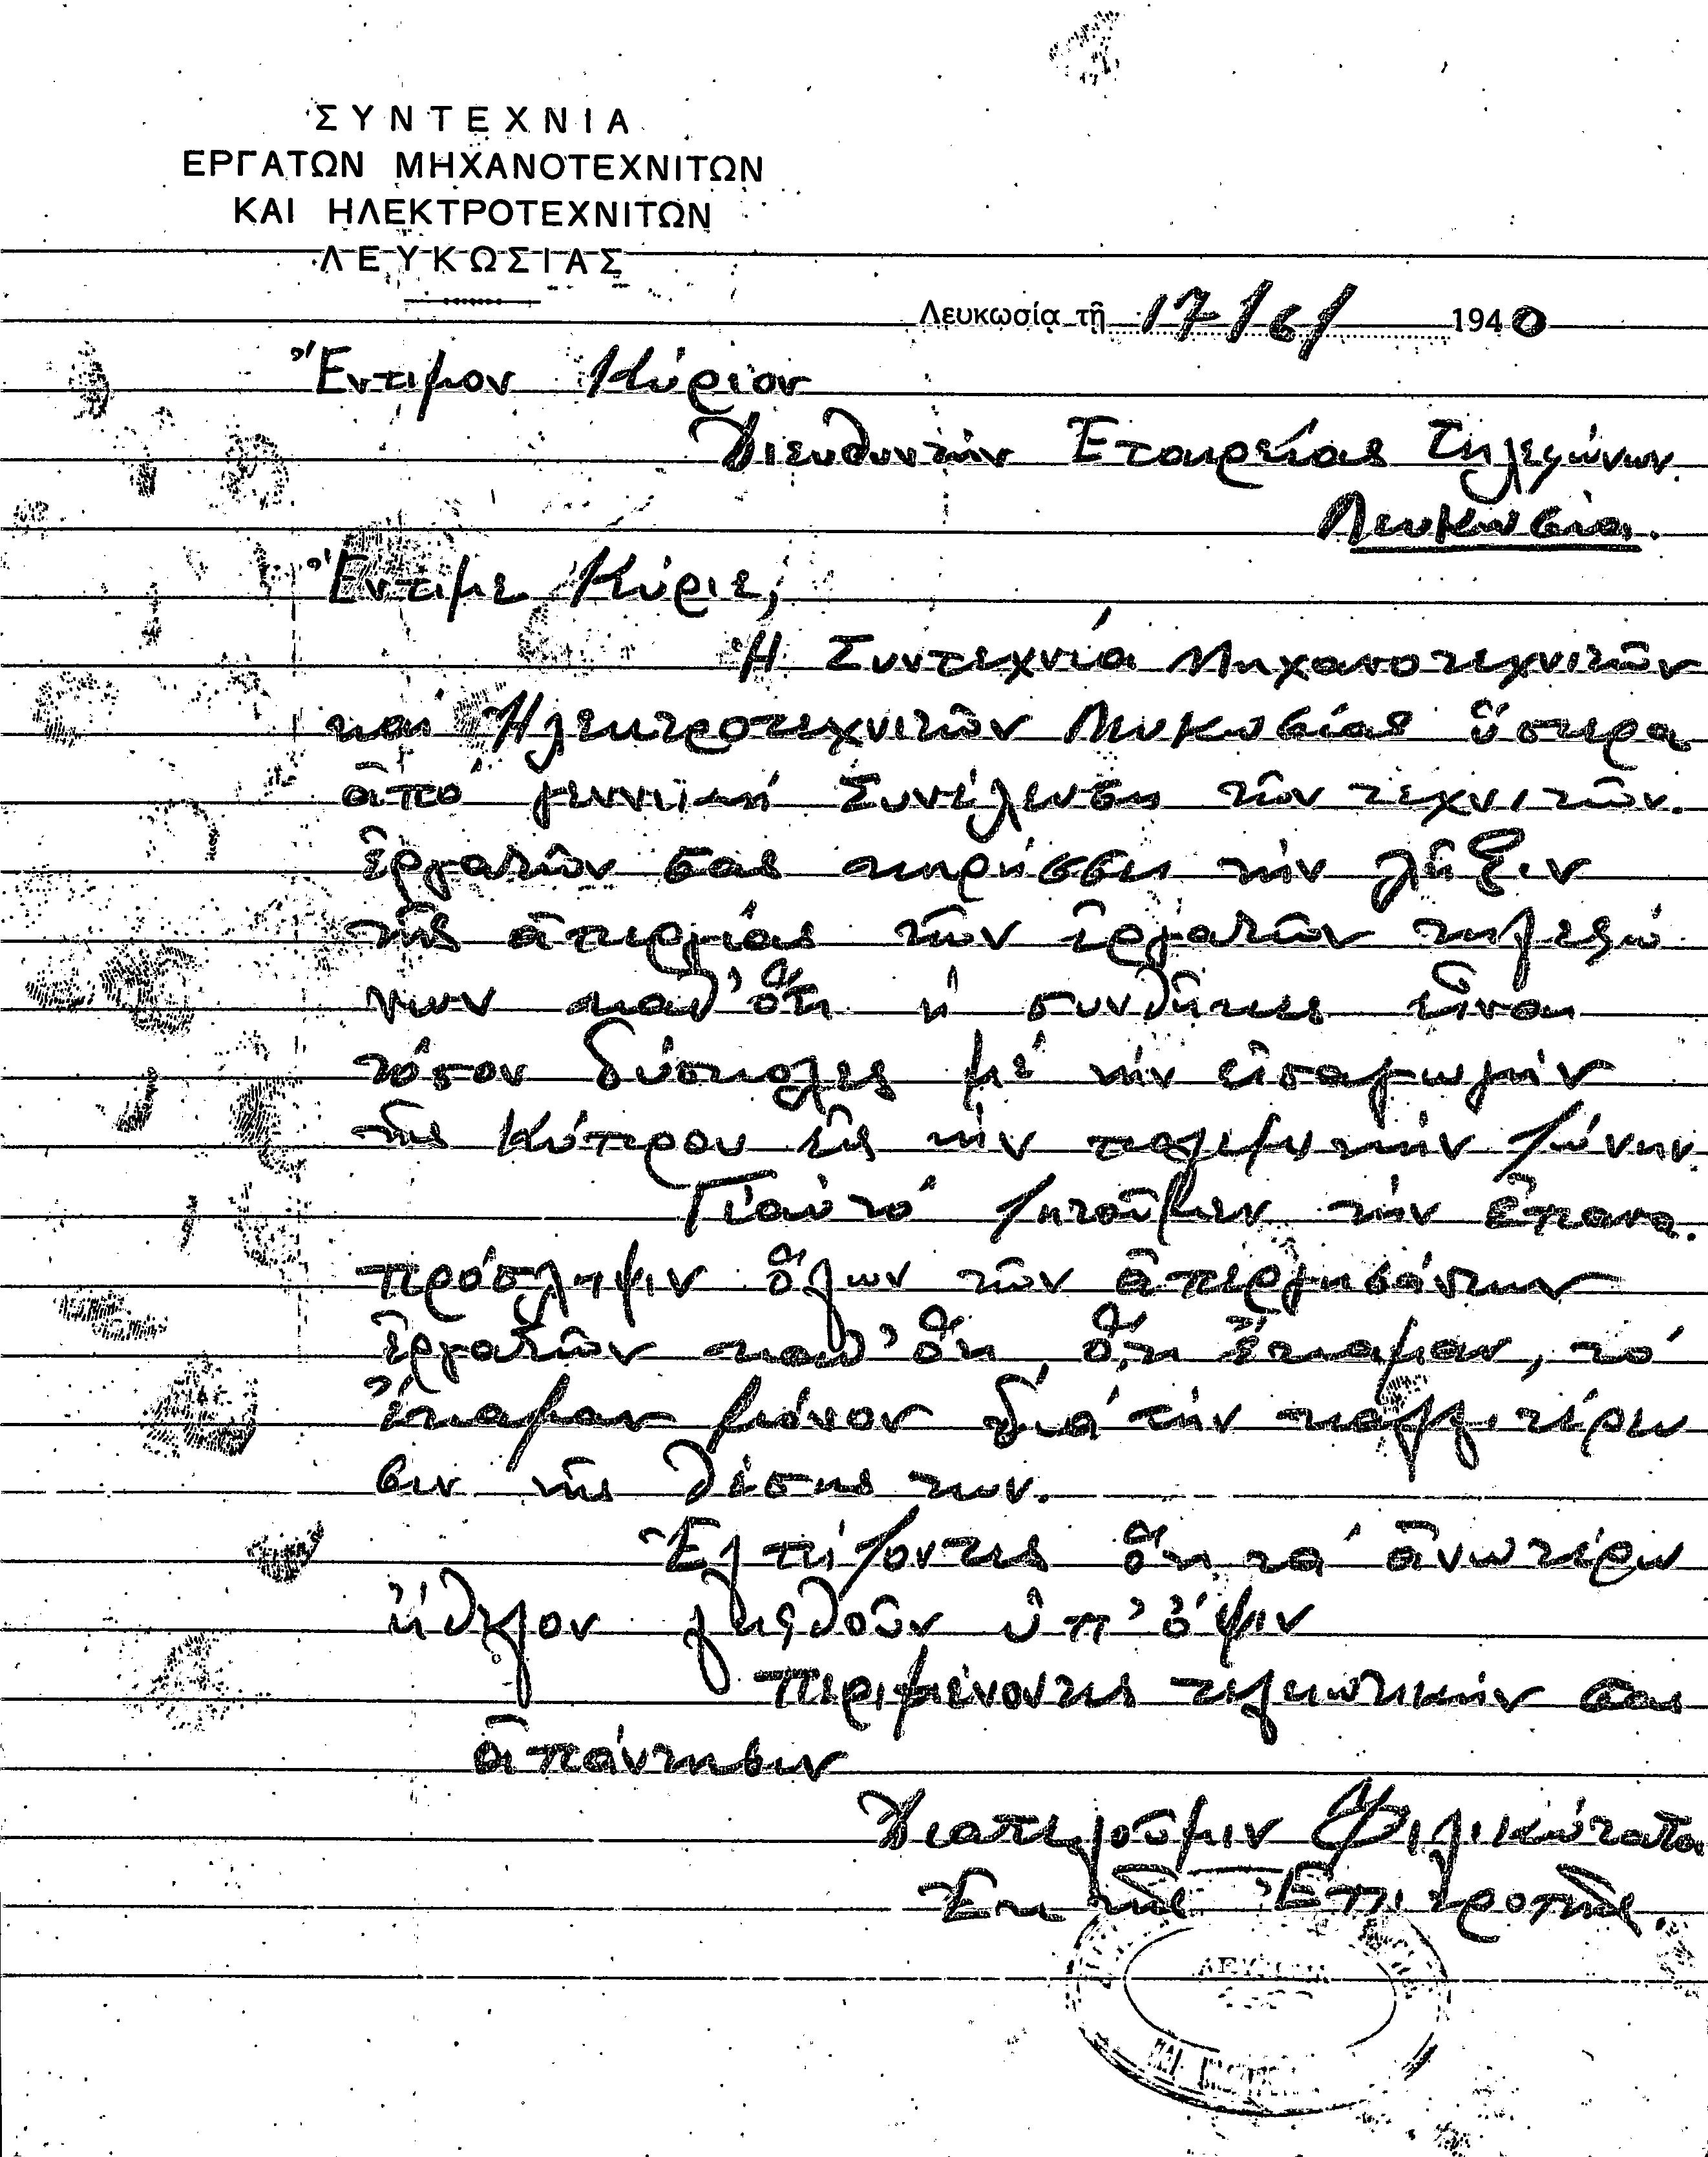 ΣΥΝΤΕΧΝΙΑ
ΕΡΓΑΤΩΝ ΜΗΧΑΝΟΤΕΧΝΙΤΩΝ
ΚΑΙ ΗΛΕΚΤΡΟΤΕΧΝΙΤΩΝ
ΛΕΥΚΩΣΙΑΣ
Λευκωσίᾳ τῇ 17/6/ 1940
Ἔντιμον Κύριον
Διευθυντὴν Ἑταιρείας Τηλεφώνων
Λευκωσία.
Ἔντιμε Κύριε,
Ἡ Συντεχνία Μηχανοτεχνιτῶν
καὶ Ἠλεκτροτεχνιτῶν Λευκωσίας ὕστερα
ἀπὸ γεννική Συνέλευση τῶν τεχνιτῶν.
ἐργατῶν σας κηρήσσει τὴν λῆξιν
τῆς ἀπεργίας τῶν ἐργατῶν τηλεφώ
νων καθ' ὅτι ἡ συνθῆκες εἶναι
τόσον δύσκολες μὲ τὴν εἰσαγωγήν
τῆς Κύπρου εἰς τὴν πολεμικὴν ζώνην.
Γι' αὐτὸ ζητοῦμεν τὴν ἐπανα.
πρόσληψιν ὅλων τῶν ἀπεργησάντων
ἐργατῶν καθ' ὅτι, ὅτι ἔκαμαν, τὸ
ἔκαμαν μόνον διὰ τὴν καλλιτέρευ
σιν τῆς θέσης των.
Ἐλπίζοντες ὅτι τὰ ἀνωτέρω
ἤθελον ληφθοῦν ὑπ' ὄψιν
περιμένοντες τελειωτικήν σας
ἀπάντησιν
Διατελοῦμεν Φιλικώτατα
Ἐκ τῆς Ἐπιτροπῆς.